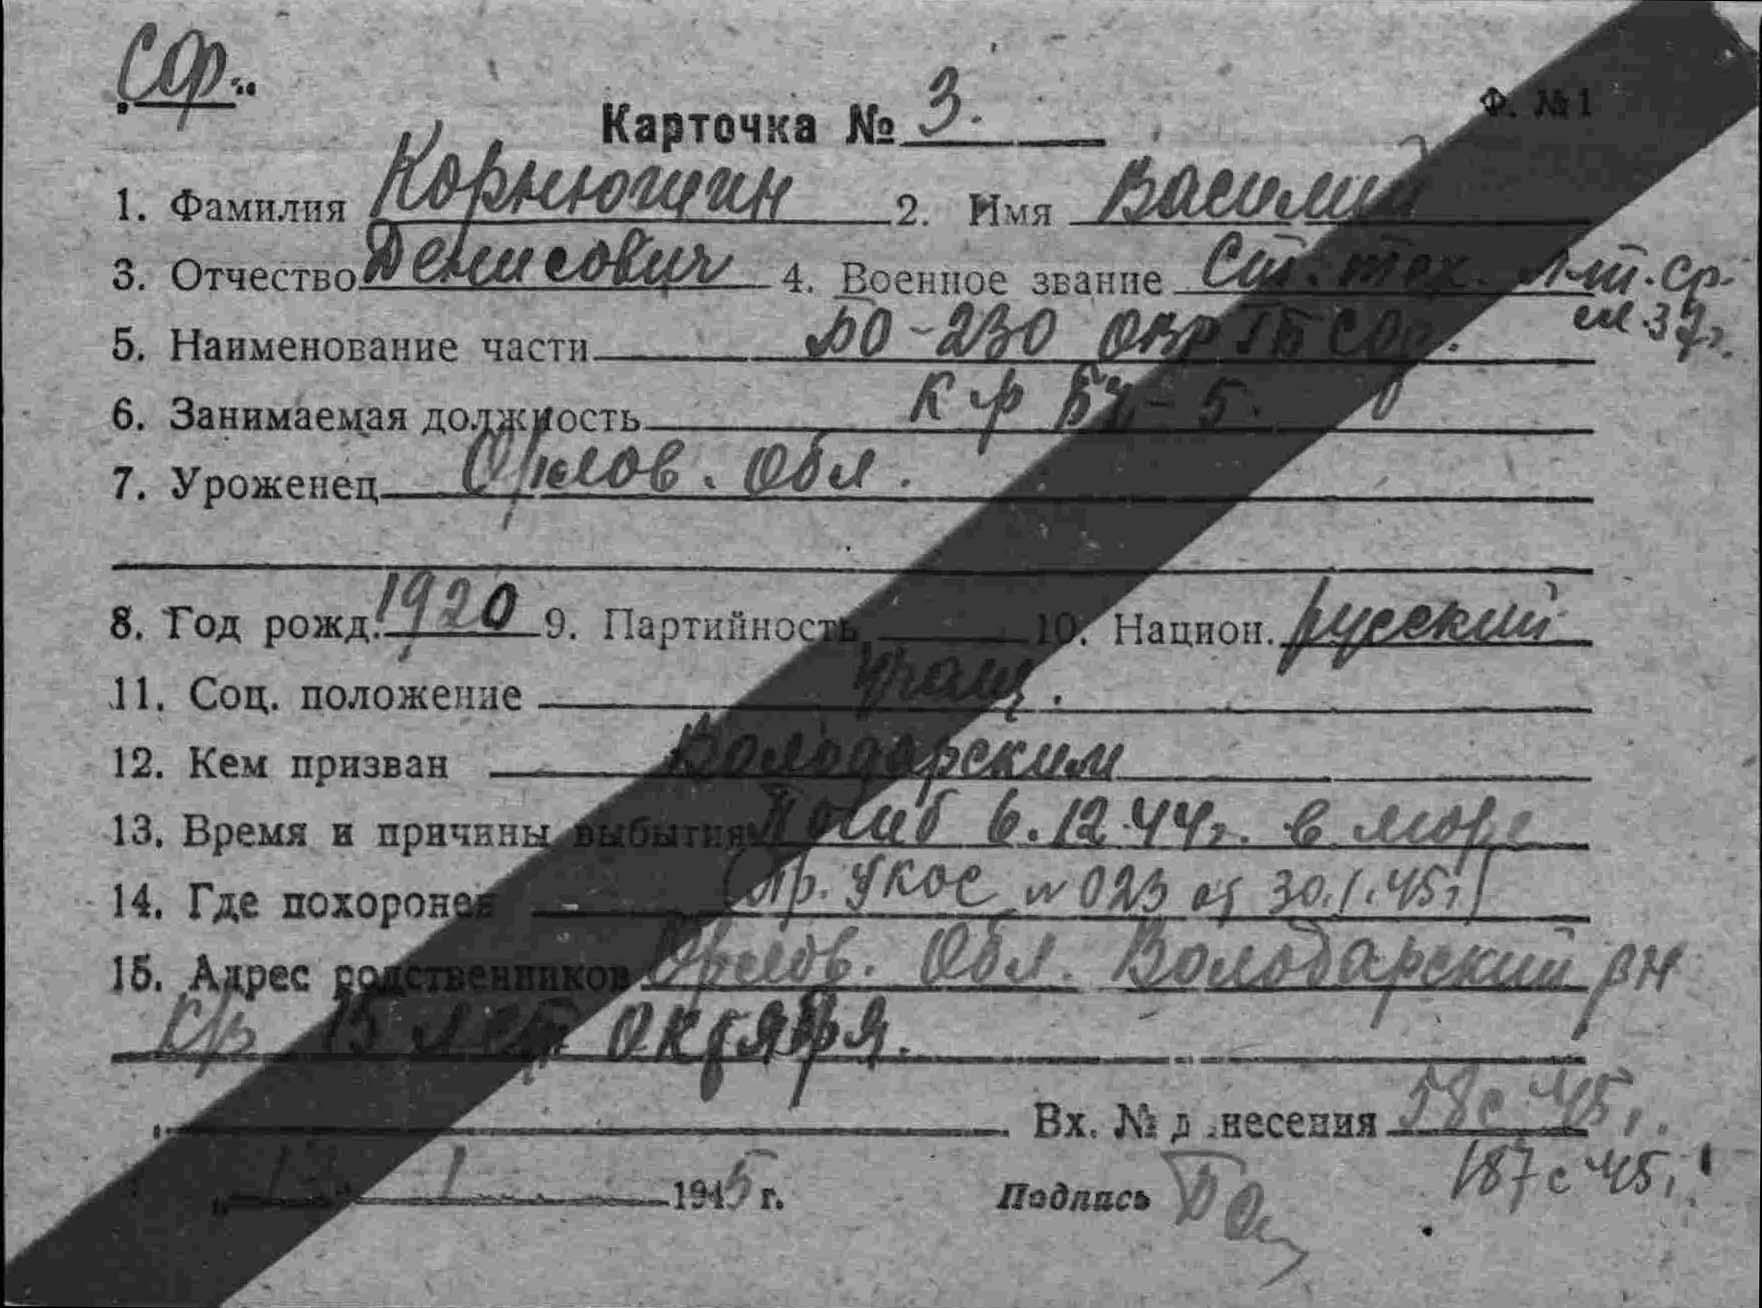 СФ.
Карточка № 3.
Ф. №1
1. Фамилия Корнюшин 2. Имя Василий
3. Отчество Денисович 4. Военное звание Ст. тех. л-т. ср.
сл. 37г.
5. Наименование части БО-230 ОВР ТБ СФ.
6. Занимаемая должность к-р БЧ-5.
7. Уроженец Орлов. Обл.
8. Год рожд. 1920 9. Партийность 10. Национ. русский
11. Соц. положение учащ.
12. Кем призван Володарским
13. Время и причины выбытия Погиб 6.12.44г. в море
14. Где похоронен (пр. УКОС № 023 от 30.1.45г)
15. Адрес родственников Орлов. Обл. Володарский рн
15 лет октября.
Вх. № д несения 58с 45г.
187с 45г.
1 1 1945 г. Подпись